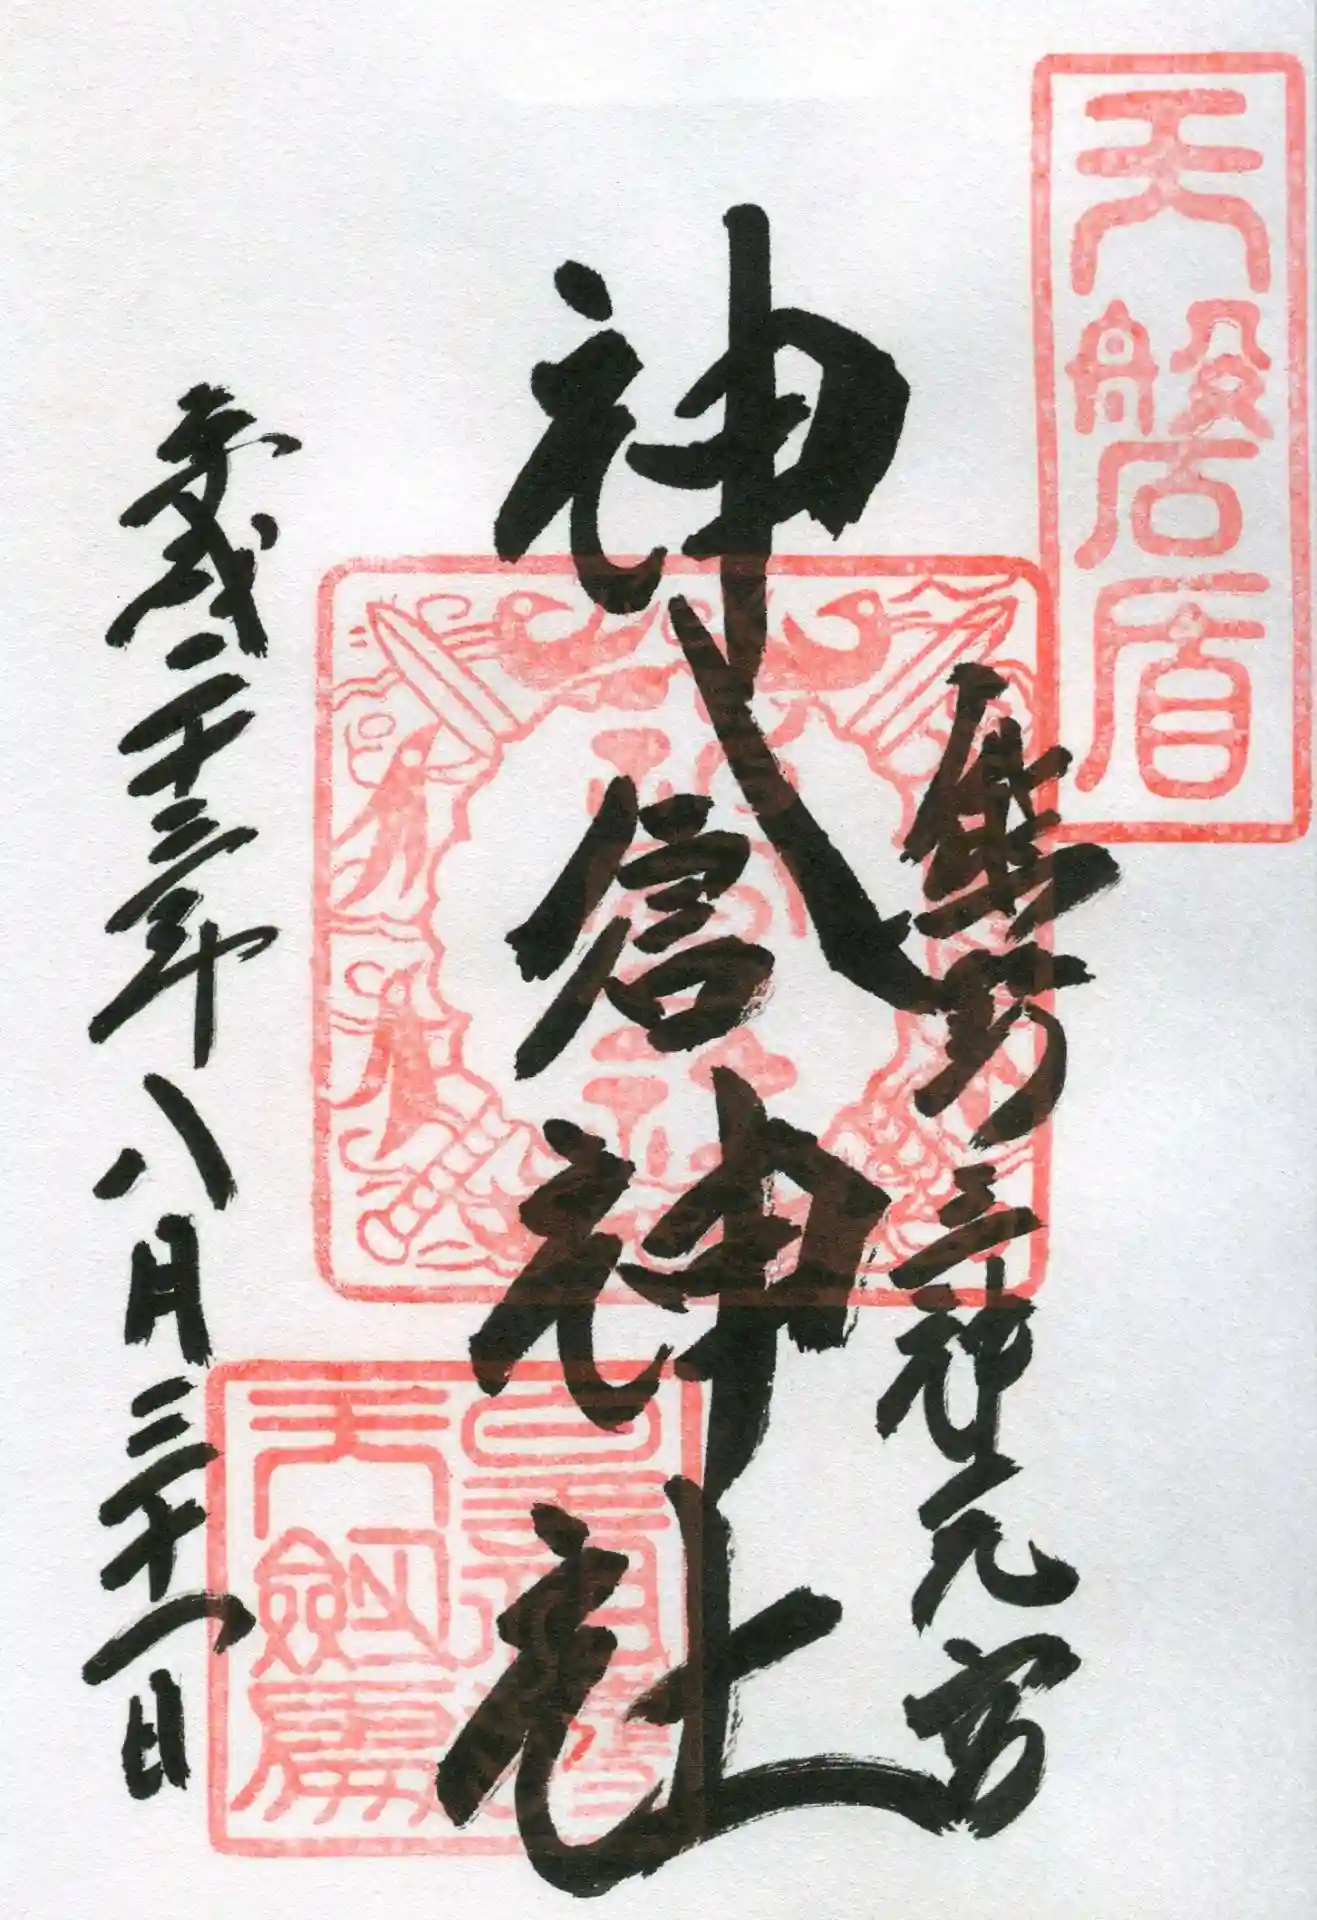 天磐盾
熊野三神元宮
神倉神社
平成二十三年八月三十一日